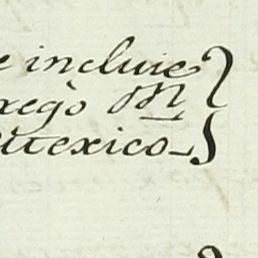 e incluie
xego M
Mexico